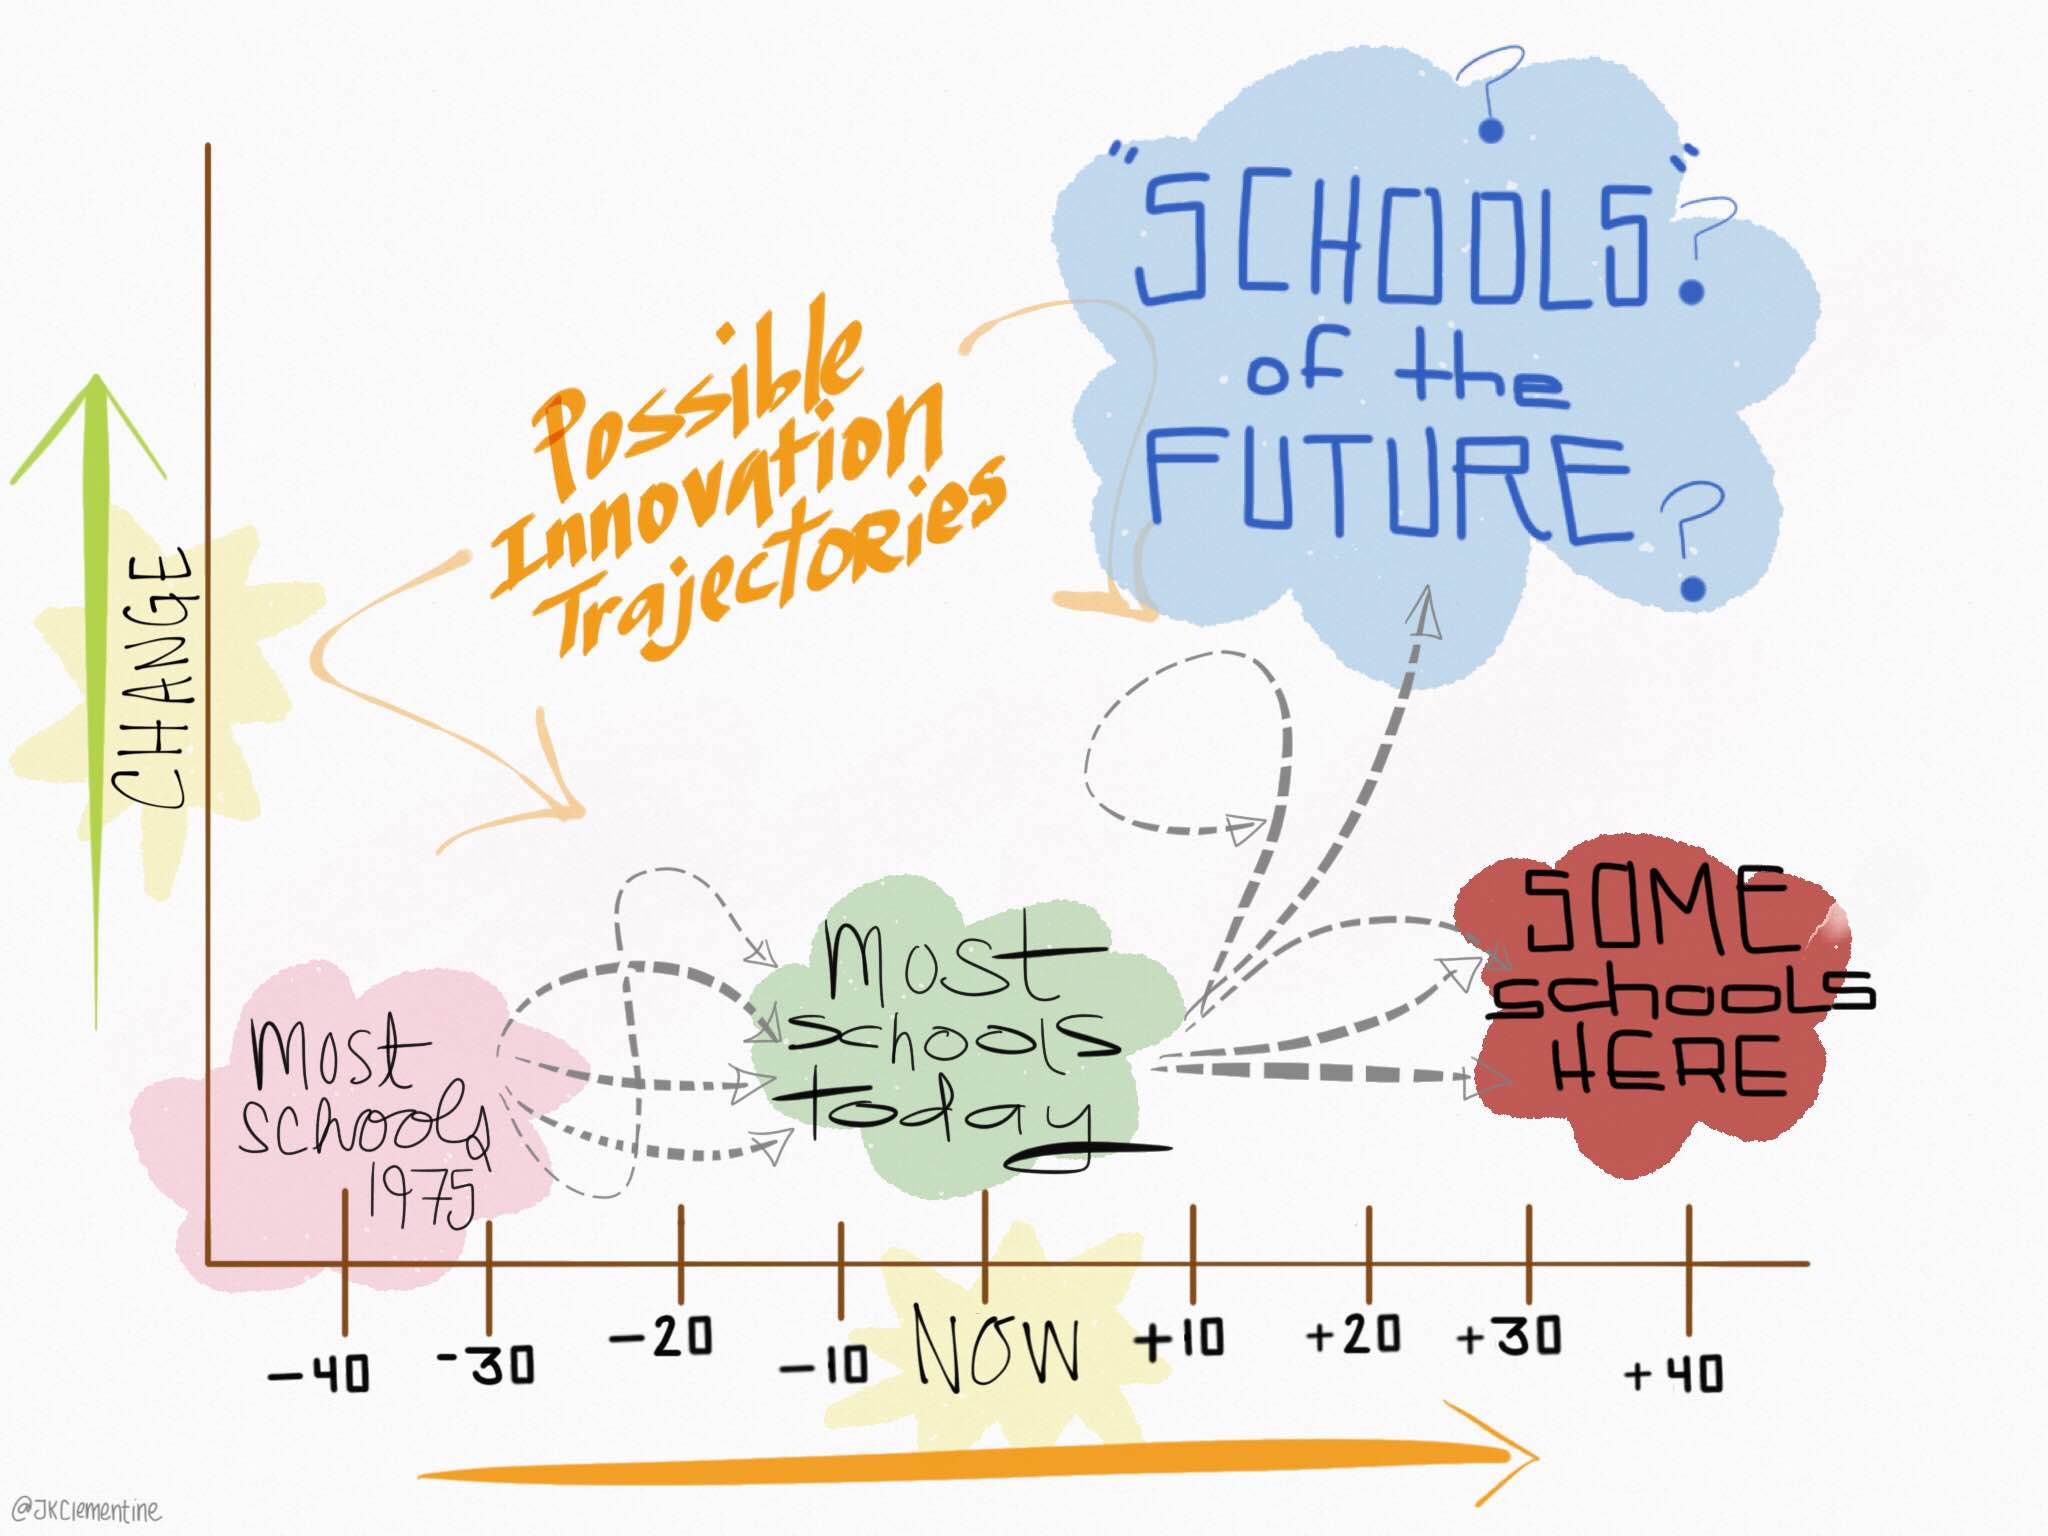 ?
"SCHOOLS"?
of the
FUTURE?
Possible
Innovation
Trajectories
CHANGE
SOME
schools
HERE
Most
schools
today
Most
schools
1975
-40 -30 -20 -10 NOW +10 +20 +30 +40
@JKClementine